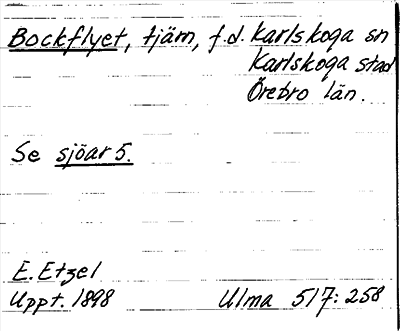 Bockflyet, tjärn, f.d. Karlskoga sn
Karlskoga stad
Örebro län.
Se sjöar 5.
E. Etzel
Uppt. 1898 Ulma 517: 258